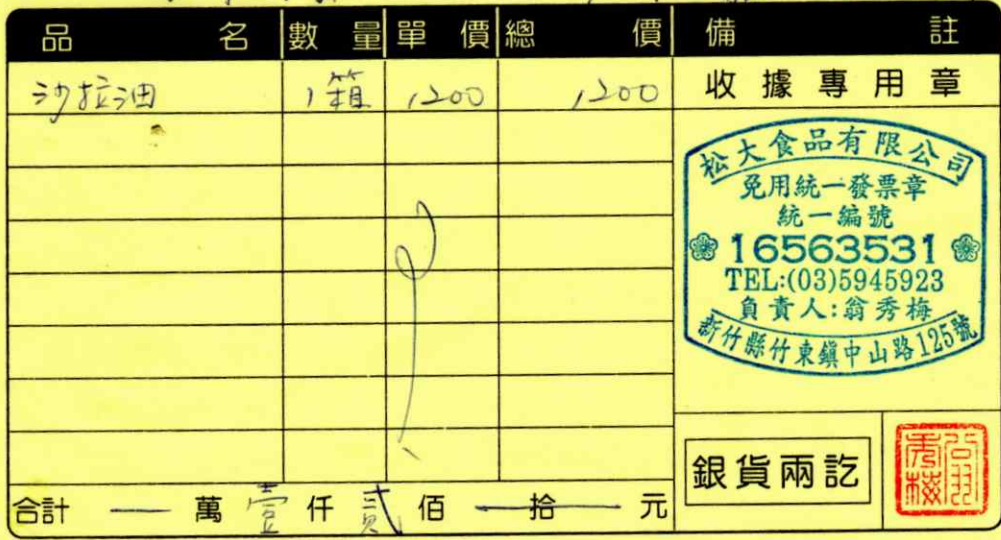 品名 數量 單價 總價 備註
沙拉油 1箱 1200 1200
收據專用章
松大食品有限公司
免用統一發票章
統一編號
16563531
TEL:(03)5945923
負責人:翁秀梅
新竹縣竹東鎮中山路125號
銀貨兩訖
翁秀梅
合計 — 萬壹仟貳佰 — 拾 — 元